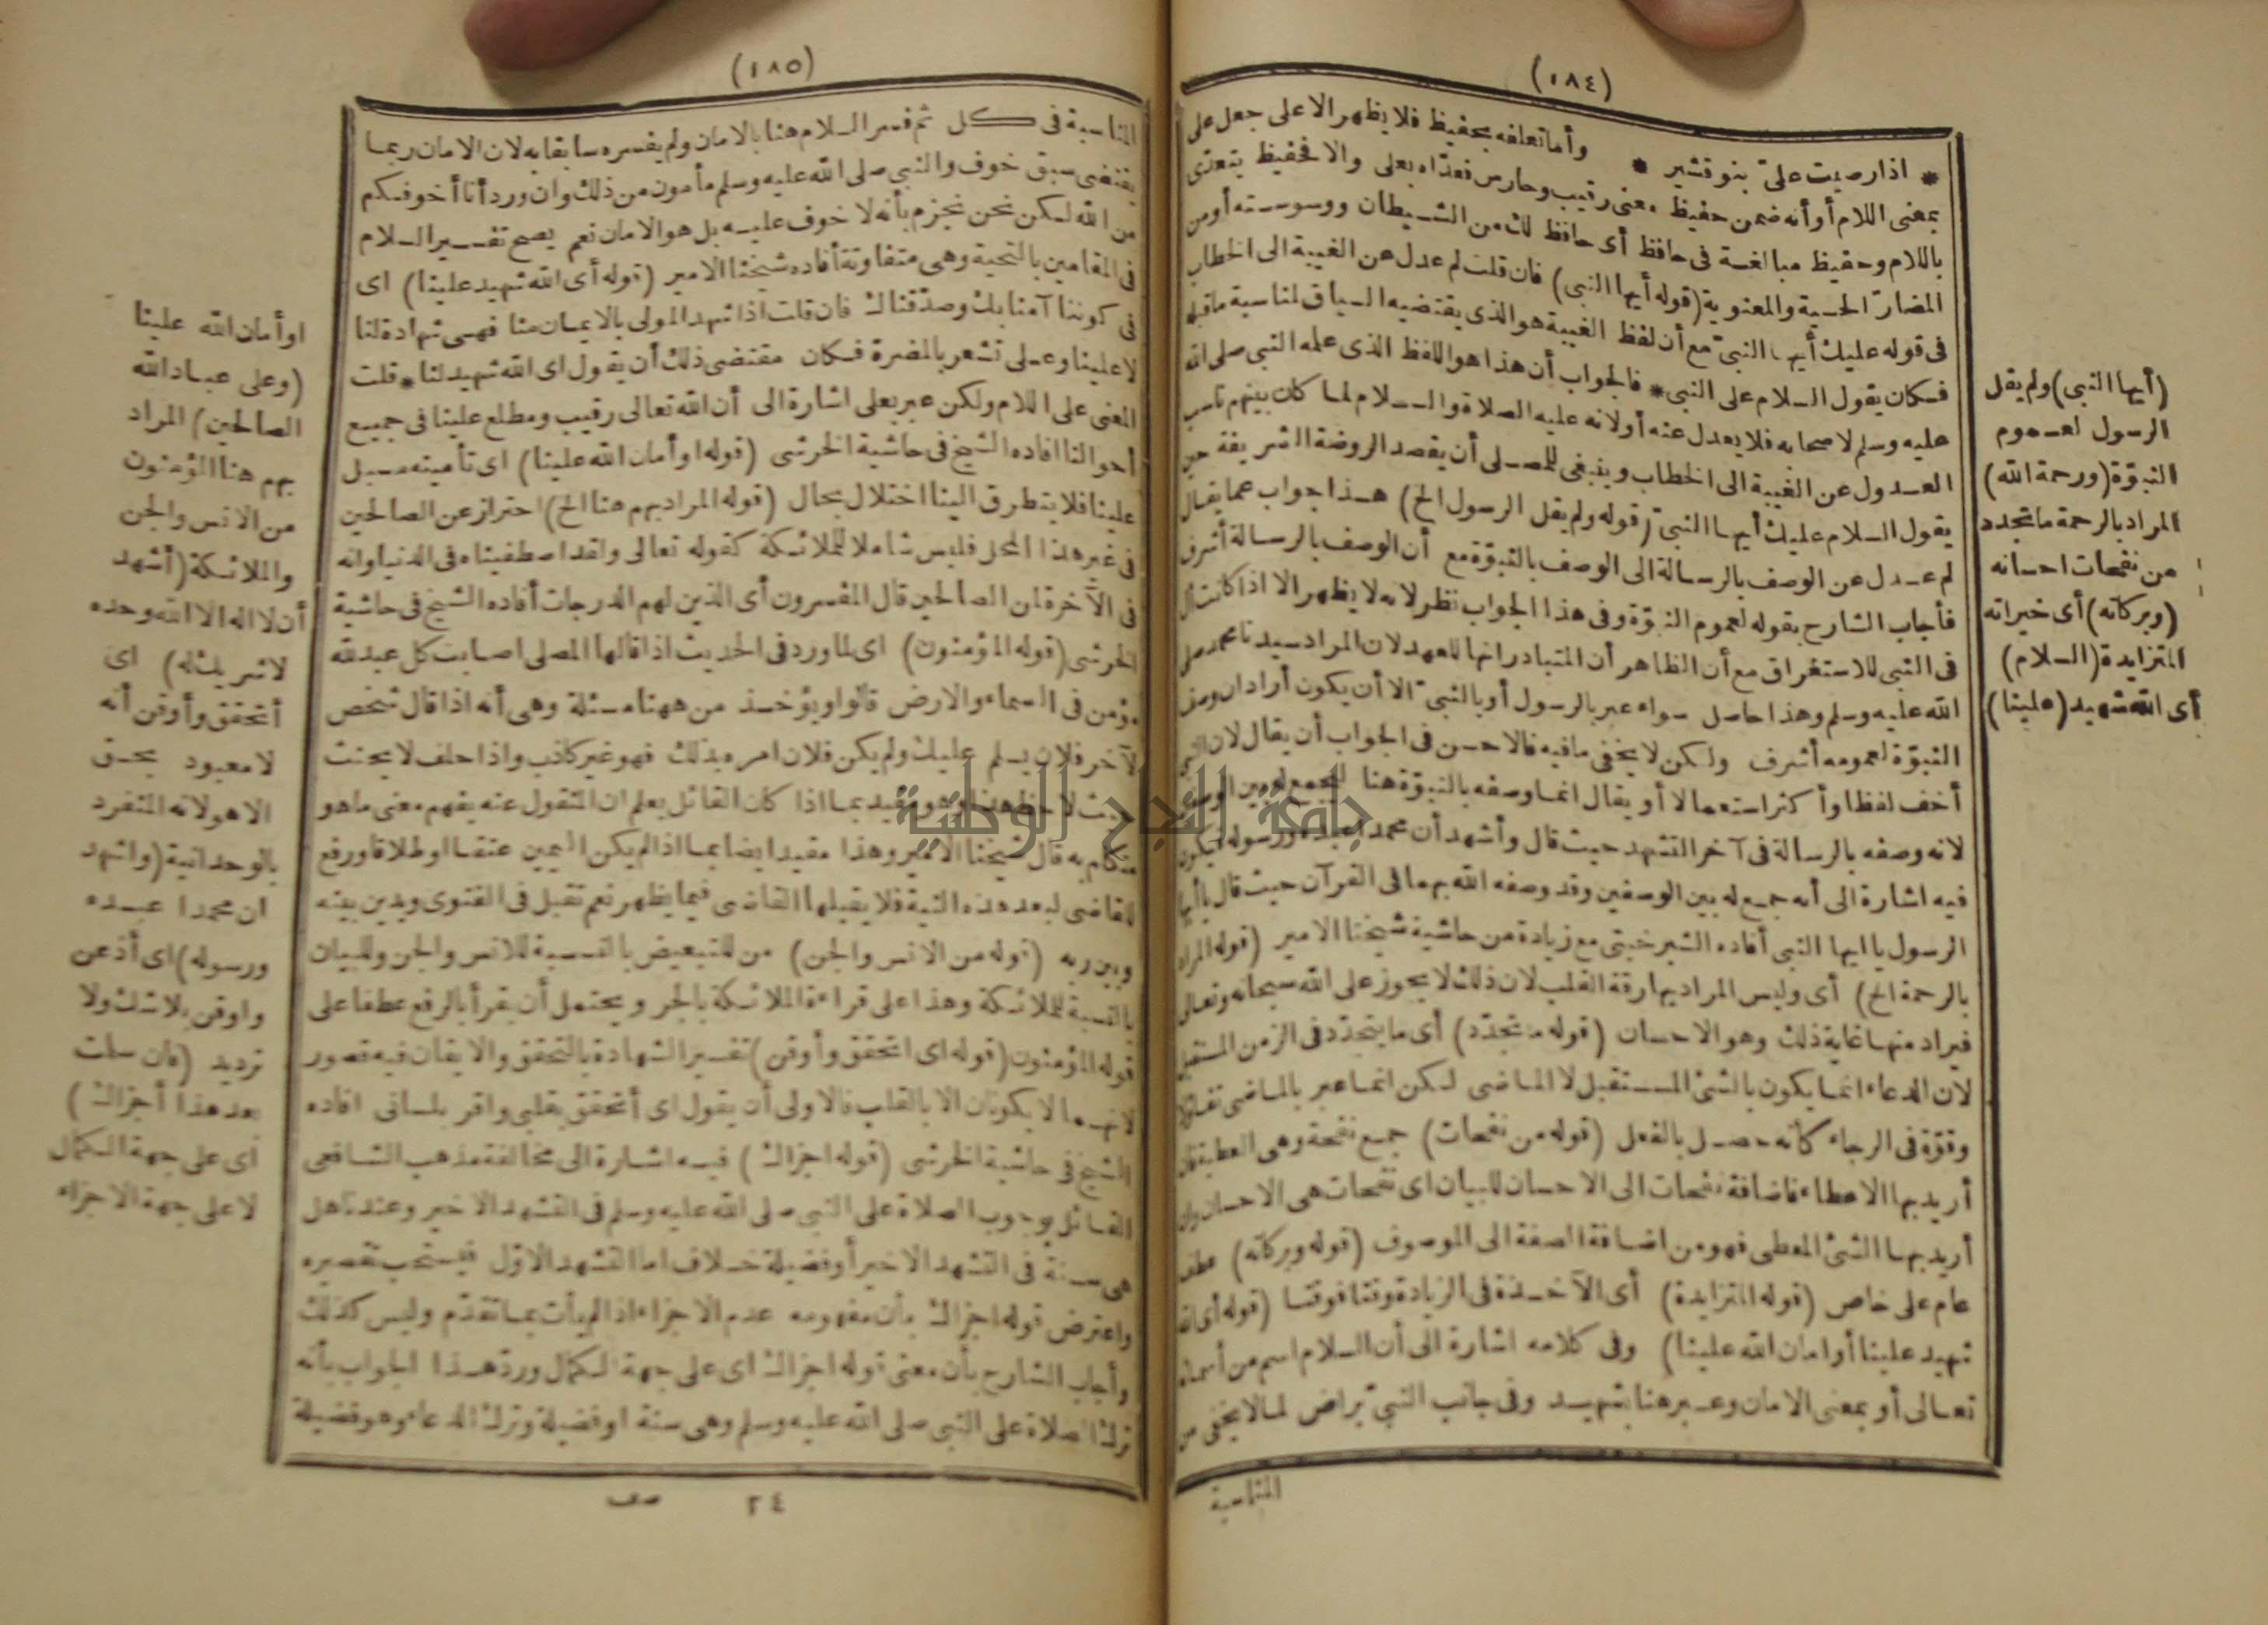 (١٨٤)
* اذا رضيت علىّ بنو قشير * وأما تعلقه بحفيظ فلا يظهر الا على جعل على
بمعنى اللام أو أنه ضمن حفيظ معنى رقيب وحارس فعدّاه بعلى والا فحفيظ يتعدّى
باللام وحفيظ مبالغسة فى حافظ أى حافظ لك من الشيطان ووسوسته أو من
المضارّ الحسية والمعنوية (قوله أيها النبى) فان قلت لم عدل عن الغيبة الى الخطاب
فى قوله عليك أيها النبىّ مع أن لفظ الغيبة هو الذى يقتضيه السياق لمناسبة ماقبله
فكان يقول السلام على النبى * فالجواب أن هذا هو اللفظ الذى علمه النبى صلى الله
عليه وسلم لاصحابه فلا يعدل عنه أولانه عليه الصلاة والسلام لما كان بينهم ناسب
العدول عن الغيبة الى الخطاب وينبغى للمصلى أن يقصد الروضة الشريفة حين
يقول السلام عليك أيها النبىّ (قوله ولم يقل الرسول الخ) هذا جواب عما يقال
لم عدل عن الوصف بالرسالة الى الوصف بالنبوّة مع أن الوصف بالرسالة أشرف
فأجاب الشارح بقوله لعموم النبوّة وفى هذا الجواب نظر لانه لا يظهر الا اذا كانت أل
فى النبى للاستغراق مع أن الظاهر أن المتبادر انها للعهد لان المراد سيدنا محمد صلى
الله عليه وسلم وهذا حاصل سواء عبر بالرسول أو بالنبىّ الا أن يكون أراد ان وصف
النبوّة لعمومه أشرف ولكن لا يخفى مافيه فالاحسن فى الجواب أن يقال لان النبى
أخف لفظا وأكثر استعمالا أو يقال انما وصفه بالنبوّة هنا ليجمع له بين الوصفين
لانه وصفه بالرسالة فى آخر التشهد حيث قال وأشهد أن محمدا عبده ورسوله ليكون
فيه اشارة الى أنه جمع له بين الوصفين وقد وصفه الله بهما فى القرآن حيث قال ياأيها
الرسول ياايها النبى أفاده الشبرخيتى مع زيادة من حاشية شيخنا الامير (قوله المراد
بالرحمة الخ) أى وليس المراد بها رقة القلب لان ذلك لا يجوز على الله سبحانه وتعالى
فيراد منها غاية ذلك وهو الاحسان (قوله ما تجدّد) أى ما يتجدّد فى الزمن المستقبل
لان الدعاء انما يكون بالشئ المستقبل لا الماضى لكن انما عبر بالماضى تفاؤلا
وقوّة فى الرجاء كأنه حصل بالفعل (قوله من نفحات) جمع نفحة وهى العطية فان
أريد بها الاعطاء فاضافة نفحات الى الاحسان للبيان اى نفحات هى الاحسان وان
أريد بها الشئ المعطى فهو من اضافة الصفة الى الموصوف (قوله وبركاته) عطف
عام على خاص (قوله المتزايدة) أى الآخذة فى الزيادة وقتا فوقتا (قوله أى الله
شهيد علينا أو امان الله علينا) وفى كلامه اشارة الى أن السلام اسم من أسمائه
تعالى أو بمعنى الامان وعبر هنا بشهيد وفى جانب النبىّ براض لما لا يخفى من
المناسبة
(أيها النبى) ولم يقل
الرسول لعموم
النبوّة (ورحمة الله)
المراد بالرحمة ما تجدد
من نفحات احسانه
(وبركاته) أى خيراته
المتزايدة (السلام)
أى الله شهيد (علينا)
(١٨٥)
المناسبة فى كل ثم فسر السلام هنا بالامان ولم يفسره سابقا به لان الامان ربما
يقتضى سبق خوف والنبى صلى الله عليه وسلم مأمون من ذلك وان ورد أنا أخوفكم
من الله لكن نحن نجزم بأنه لا خوف عليه بل هو الامان نعم يصح تفسير السلام
فى المقامين بالتحية وهى متفاوتة أفاده شيخنا الامير (قوله أى الله شهيد علينا) اى
فى كوننا آمنا بك وصدّقناك فان قلت اذا شهد المولى بالايمان منا فهى شهادة لنا
لا علينا وعلى تشعر بالمضرة فكان مقتضى ذلك أن يقول اى الله شهيد لنا * قلت
المعنى على اللام ولكن عبر بعلى اشارة الى أن الله تعالى رقيب ومطلع علينا فى جميع
أحوالنا افاده الشيخ فى حاشية الخرشى (قوله او أمان الله علينا) اى تأمينه مسبل
علينا فلا يتطرق الينا اختلال بحال (قوله المراد بهم هنا الخ) احتراز عن الصالحين
فى غير هذا المحل فليس شاملا للملائكة كقوله تعالى ولقد اصطفيناه فى الدنيا وانه
فى الآخرة لمن الصالحين قال المفسرون أى الذين لهم الدرجات أفاده الشيخ فى حاشية
الخرشى (قوله المؤمنون) اى لما ورد فى الحديث اذا قالها المصلى اصابت كل عبد لله
مؤمن فى السماء والارض قالوا ويؤخذ من ههنا مسئلة وهى أنه اذا قال شخص
لآخر فلان يسلم عليك ولم يكن فلان امره بذلك فهو غير كاذب واذا حلف لا يحنث
حيث لاحظ هذا وهو مقيد بما اذا كان القائل يعلم ان المنقول عنه يفهم معنى ما هو
متكلم به قال شيخنا الامير وهذا مقيد ايضا بما اذا لم يكن اليمين عتقا او طلاقا ورفع
للقاضى لبعد هذه النية فلا يقبلها القاضى فيما يظهر نعم تقبل فى الفتوى ويدين بينه
وبين ربه (قوله من الانس والجن) من للتبعيض بالنسبة للانس والجن وللبيان
بالنسبة للملائكة وهذا على قراءة الملائكة بالجر ويحتمل أن يقرأ بالرفع عطفا على
قوله المؤمنون (قوله اى اتحقق وأوقن) تفسير الشهادة بالتحقق والايقان فيه قصور
لانهما لا يكونان الا بالقلب فالاولى أن يقول اى أتحقق بقلبى واقر بلسانى افاده
الشيخ فى حاشية الخرشى (قوله اجزاك) فيه اشارة الى مخالفة مذهب الشافعى
القائل بوجوب الصلاة على النبى صلى الله عليه وسلم فى التشهد الاخير وعندنا هل
هى سنة فى التشهد الاخير أو فضيلة خلاف اما التشهد الاوّل فيستحب تقصيره
واعترض قوله اجزاك بأن مفهومه عدم الاجزاء اذا لم يأت بما تقدّم وليس كذلك
وأجاب الشارح بأن معنى قوله اجزاك اى على جهة الكمال وردّ هذا الجواب بأنه
ترك الصلاة على النبى صلى الله عليه وسلم وهى سنة او فضيلة وترك الدعاء وهو فضيلة
٢٤ صف
او أمان الله علينا
(وعلى عباد الله
الصالحين) المراد
بهم هنا المؤمنون
من الانس والجن
والملائكة (أشهد
أن لا اله الا الله وحده
لا شريك له) اى
أتحقق وأوقن أنه
لا معبود بحق
الا هو لانه المتفرد
بالوحدانية (واشهد
ان محمدا عبده
ورسوله) اى أذعن
واوقن بلا شك ولا
ترديد (فان سلمت
بعد هذا أجزاك)
اى على جهة الكمال
لا على جهة الاجزاء
جامعة النجاح الوطنية